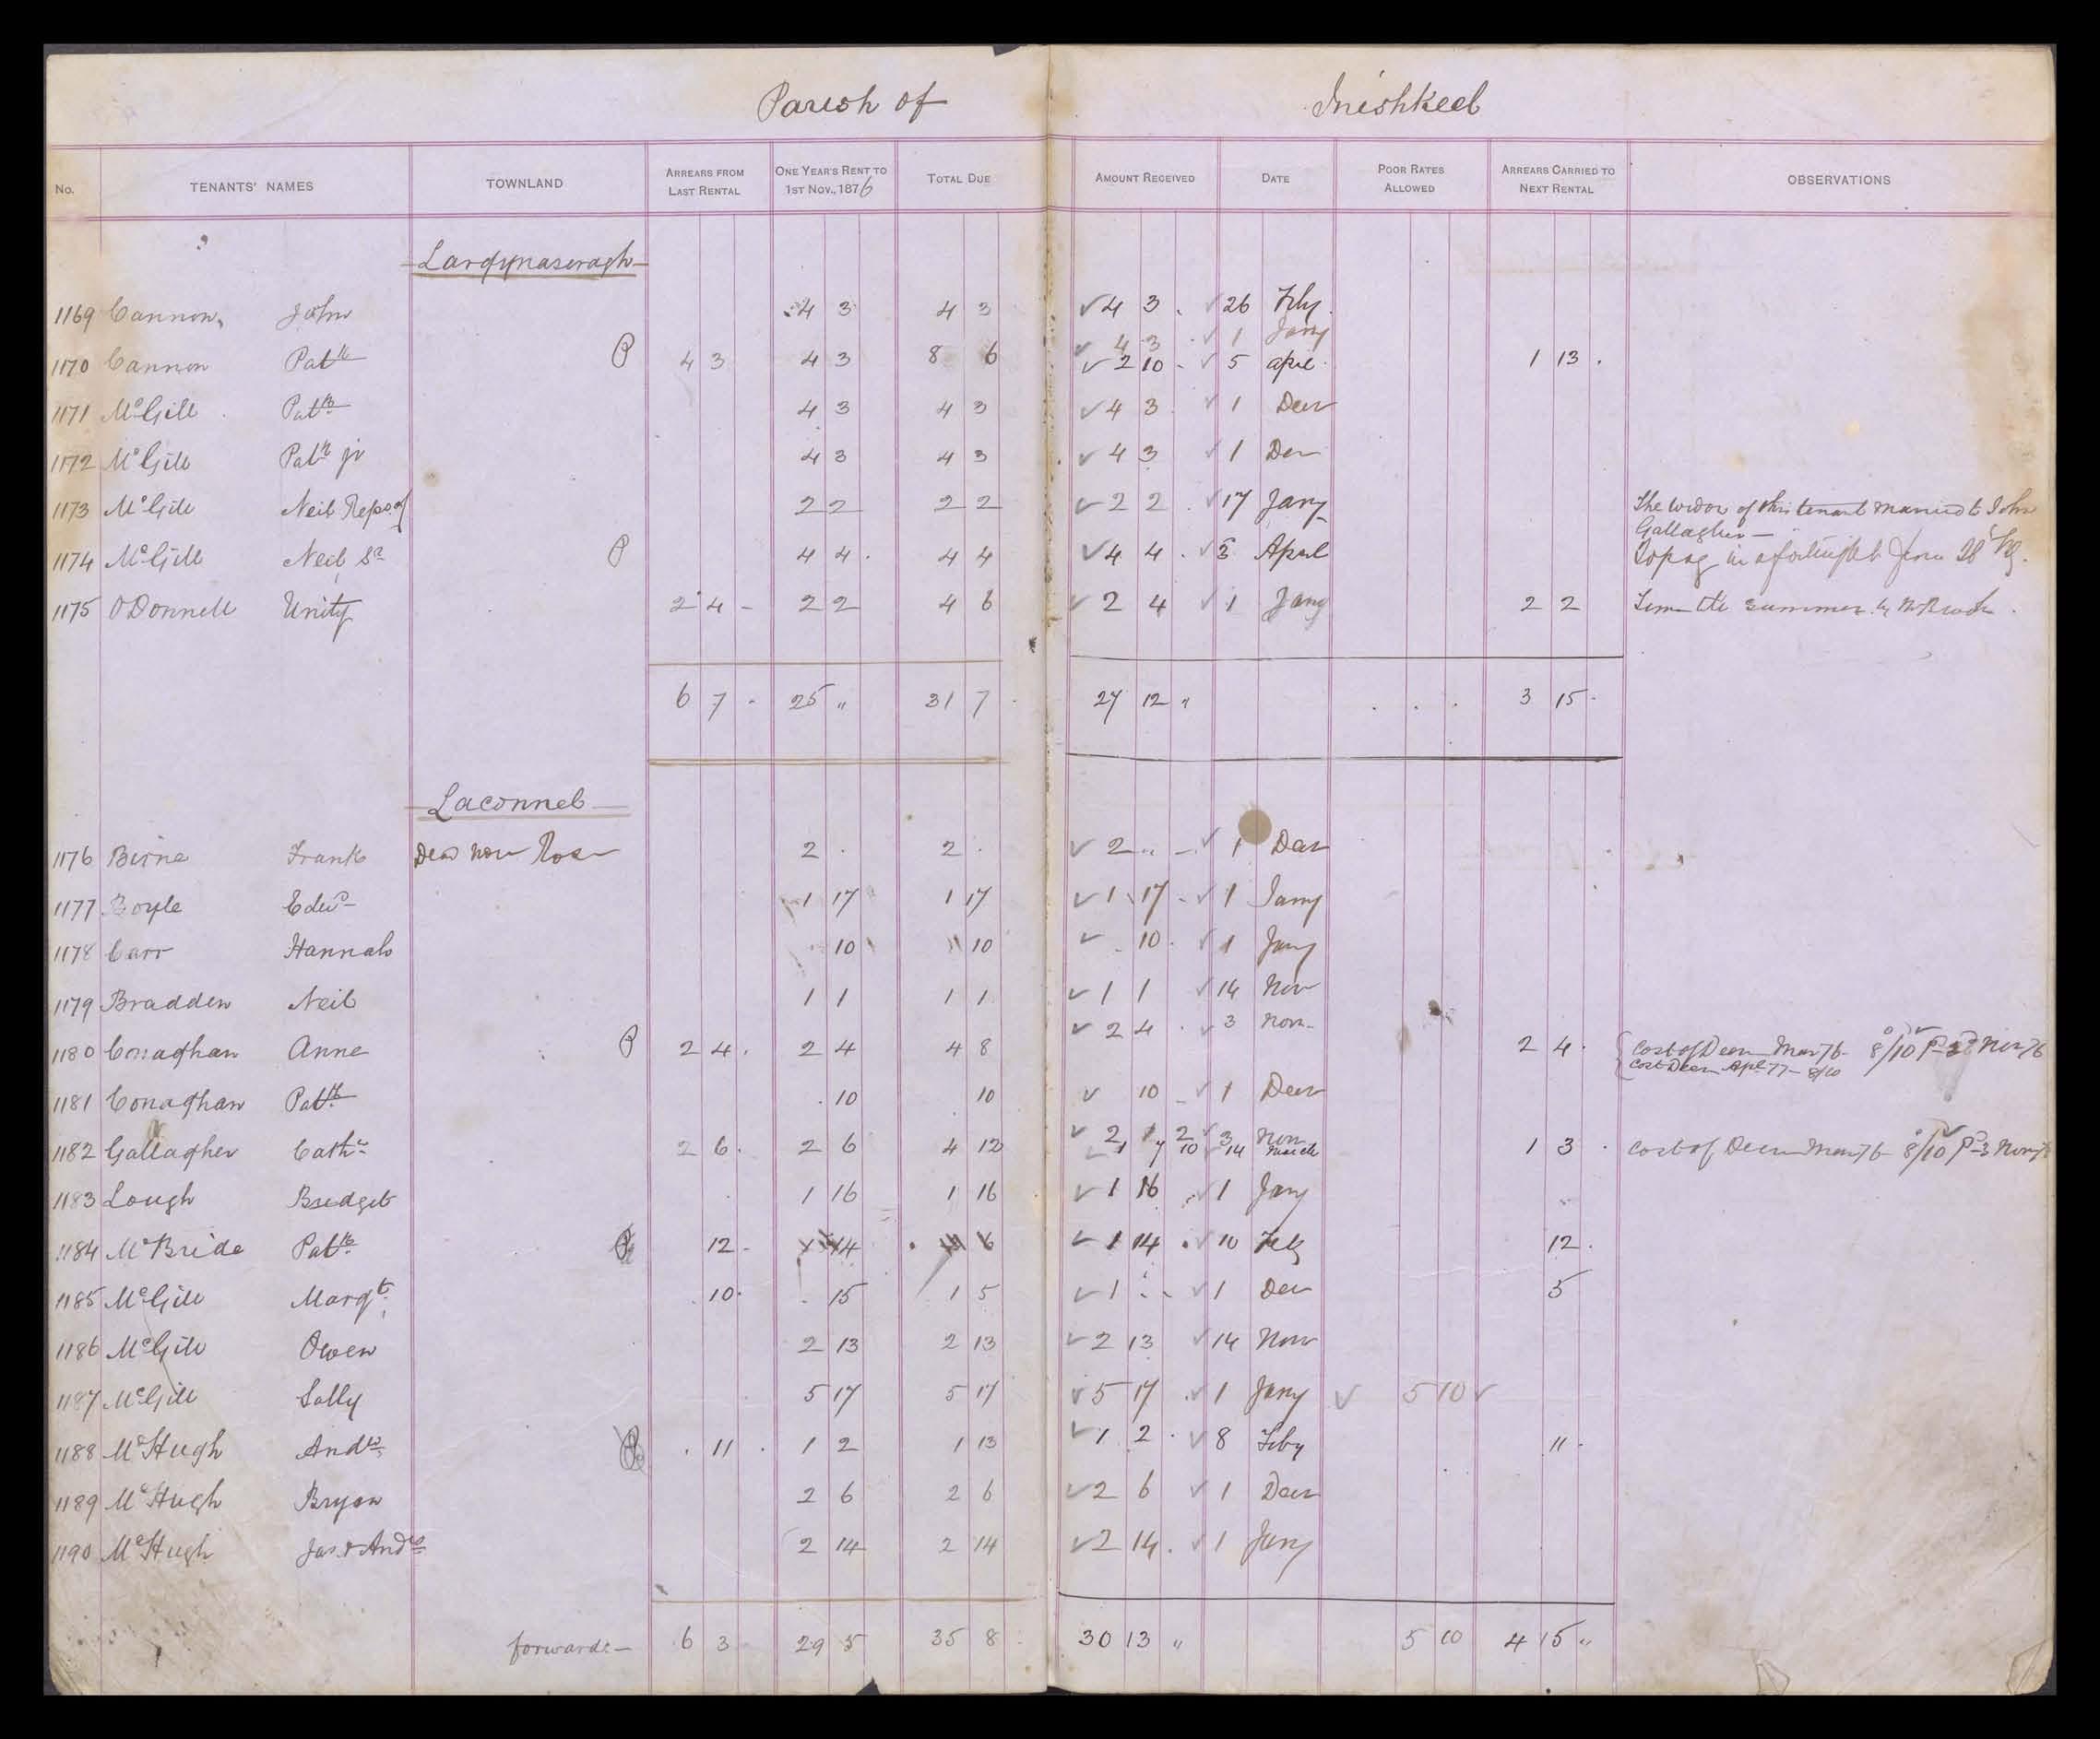 Parish of Inishkeel
No. TENANTS' NAMES TOWNLAND ARREARS FROM LAST RENTAL ONE YEAR'S RENT TO 1ST NOV., 1876 TOTAL DUE AMOUNT RECEIVED DATE POOR RATES ALLOWED ARREARS CARRIED TO NEXT RENTAL OBSERVATIONS
Largynaseragh
1169 Cannon John 4 3 4 3 4 3 26 Feby
4 3 1 Jany
1170 Cannon Patk P 4 3 4 3 8 6 2 10 5 April 1 13
1171 McGill Patk 4 3 4 3 4 3 1 Decr
1172 McGill Patk jr 4 3 4 3 4 3 1 Decr
1173 McGill Neil Reps of 2 2 2 2 2 2 17 Jany The widow of this tenant married to John
Gallagher
1174 McGill Neil Sr P 4 4 4 4 4 4 3 April To pay in a fortnight from 28
1175 O'Donnell Unity 2 4 2 2 4 6 2 4 1 Jany 2 2 Time till summer by
6 7 25 " 31 7 27 12 " 3 15
Laconnel
1176 Birne Frank Dead now Rose 2 2 2 " 1 Decr
1177 Boyle Edwd 1 17 1 17 1 17 1 Jany
1178 Carr Hannah 10 10 10 1 Jany
1179 Bradden Neil 1 1 1 1 1 1 14 Nov
1180 Conaghan Anne P 2 4 2 4 4 8 2 4 3 Nov 2 4 Cost of Decree Mar 76 8/10 Pd 3d Nov 76
Cost Decree Apl 77 8/10
1181 Conaghan Patk 10 10 10 1 Decr
1182 Gallagher Cathe 2 6 2 6 4 12 2 1 2 3 Nov 1 3 Cost of Decree Mar 76 8/10 Pd 3 Nov
1 7 10 14 March
1183 Lough Bridget 1 16 1 16 1 16 1 Jany
1184 McBride Patk P 12 1 14 6 1 14 10 Feby 12
1185 McGill Margt 10 15 1 5 1 1 Decr 5
1186 McGill Owen 2 13 2 13 2 13 14 Nov
1187 McGill Sally 5 17 5 17 5 17 1 Jany 5 10
1188 McHugh Andw P 11 1 2 1 13 1 2 8 Feby 11
1189 McHugh Bryan 2 6 2 6 2 6 1 Decr
1190 McHugh Jas & Andw 2 14 2 14 2 14 1 Jany
forwards 6 3 29 5 35 8 30 13 " 5 10 4 15 "